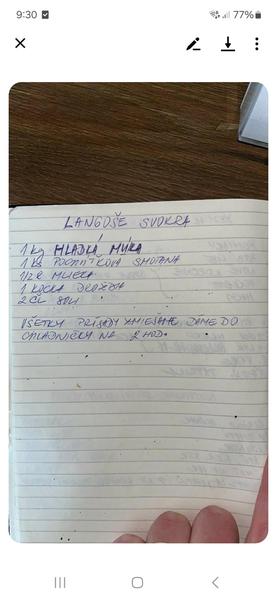 9:30
77%
LANGOŠE SVOKRA
1 kg HLADKÁ MÚKA
1 ks POCHÚŤKOVÁ SMOTANA
1/2 l MLIEKA
1 KOCKA DROŽDIA
2 ČL SOLI
VŠETKY PRÍSADY ZMIEŠAME DÁME DO
CHLADNIČKY NA 2 HOD.